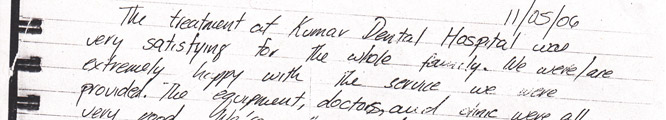 11/05/06
The treatment at Kumar Dental Hospital was
very satisfying for the whole family. We were/are
extremely happy with the service we were
provided. The equipment, doctors, and clinic were all
very good